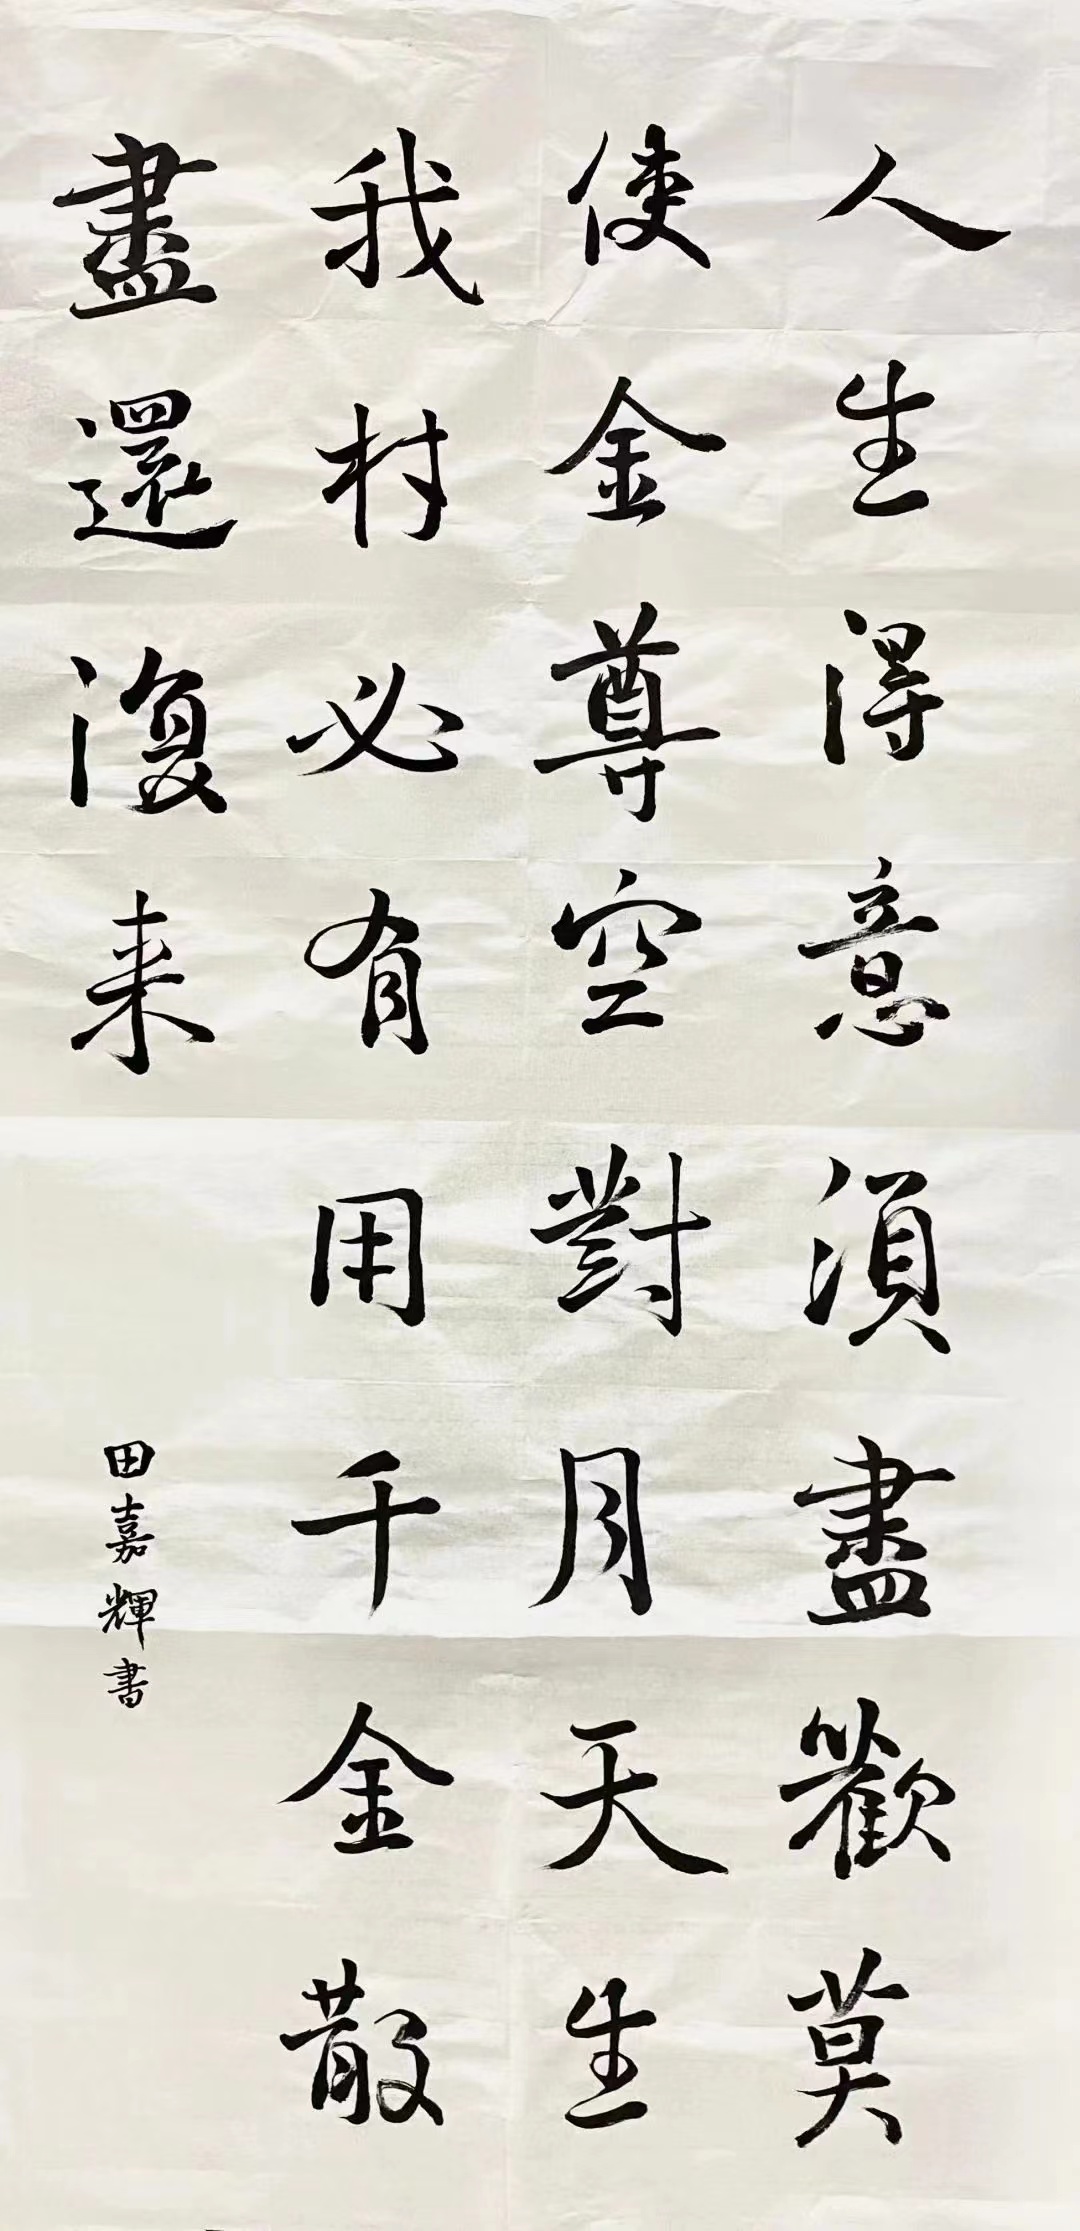 人生得意須盡歡莫
使金尊空對月天生
我材必有用千金散
盡還復来
田嘉輝書